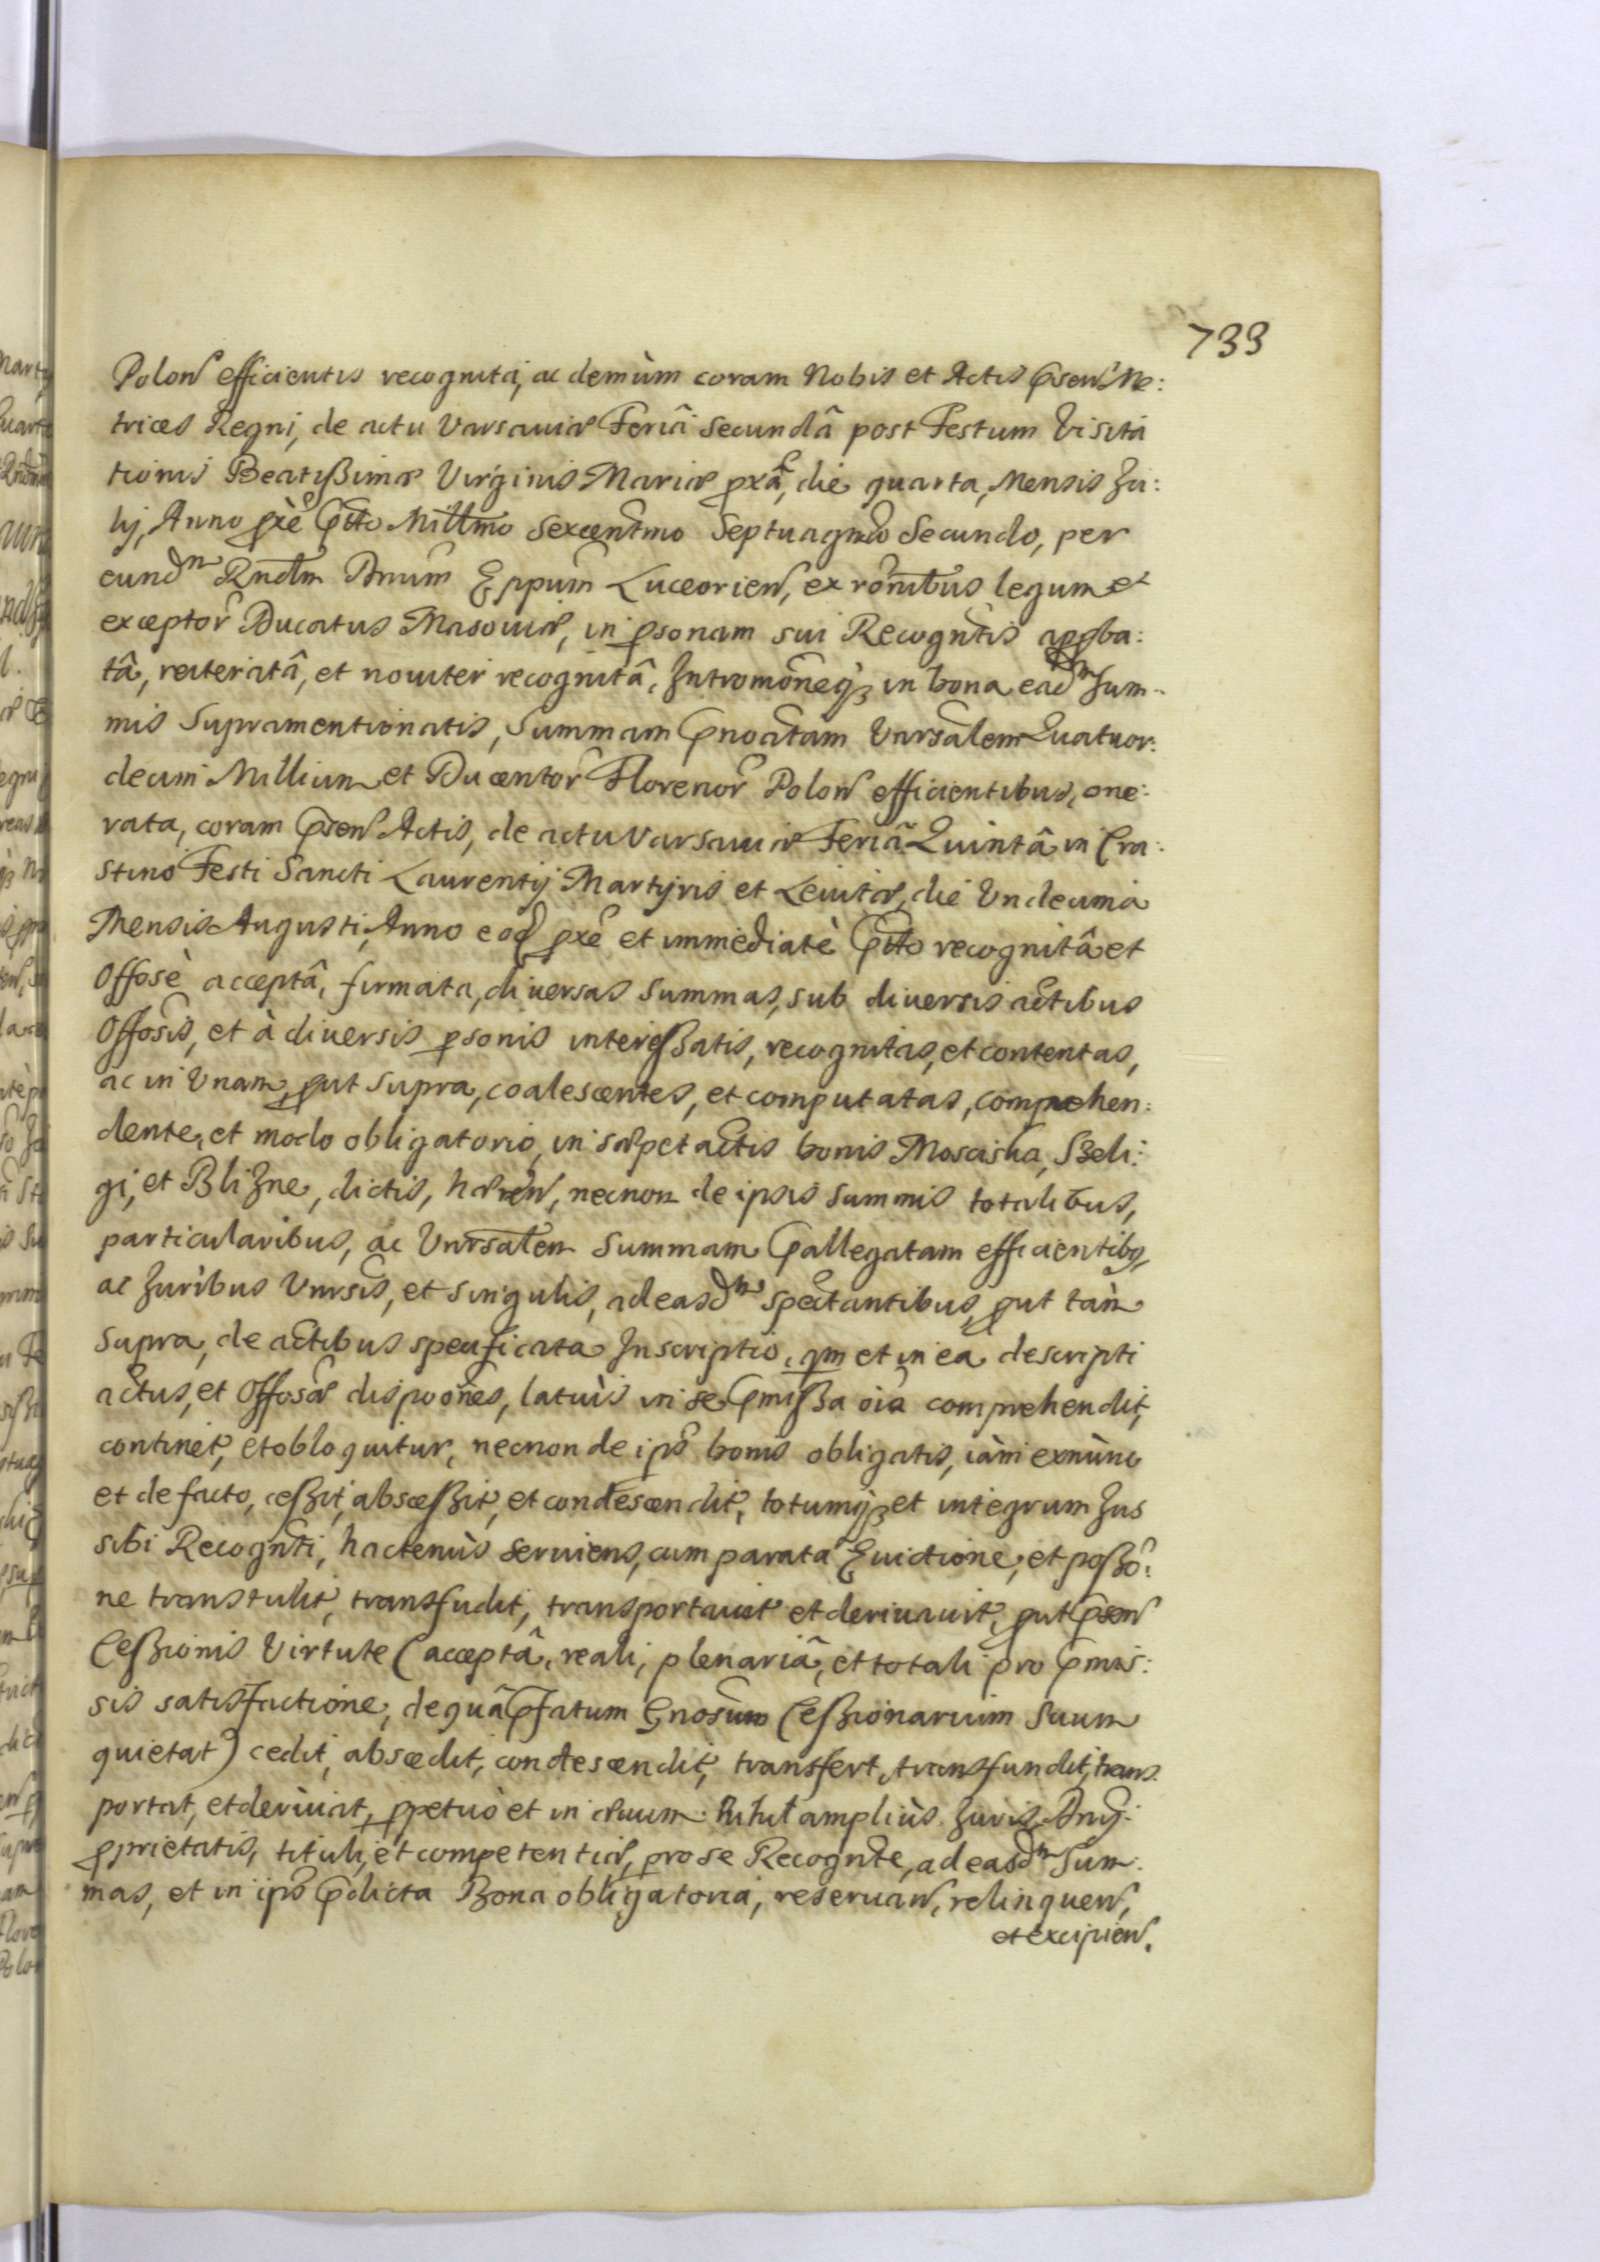 733
Polon̄ efficientis recognita, ac demùm coram Nobis et Actis p̄sen̄ Me:
trices Regni, de actu Varsauiæ Feriâ Secundâ post Festum Visita
tionis Beatißimæ Virginis Mariæ pxâ, die quarta, Mensis Ju:
lij, Anno pxè p̄tto Millm̄o Sexcentmo Septuagm̄o Secundo, per
eund̄m Rndm̄ Dnum̄ Eppum̄ Luceorien̄, ex rōnibus legum et
exceptor̄ Ducatus Masouiæ, in psonam sui Recogntis approba:
tâ, reiteratâ, et nouiter recognitâ, Intromōneq; in bona ead̄m Sum-
mis Supramentionatis, Summam p̄noatam Vnrsalem Quatuor:
decim Millium et Ducentor̄ Florenor̄ Polon̄ efficientibus, one:
rata, coram p̄sen̄ Actis, de actu Varsauiæ Feriâ Quintâ in Cra:
stino Festi Sancti Laurentij Martyris et Leuitæ, die Undecima
Mensis Augusti, Anno eod̄ pxe et immediatè p̄tto recognitâ et
Offosè acceptâ, firmata, diuersas Summas, sub diuersis actibus
Offosis, et à diuersis psonis intereßatis, recognitas, et contentas,
ac in Vnam, put supra, coalescentes, et computatas, comprehen:
dente, et modo obligatorio, in sæpetactis bonis Mosciska, Szeli:
gi, et Blizne, dictis, hæren̄, necnon de ipsis Summis totalibus,
particularibus, ac Vnrsalem Summam p̄allegatam efficientibq,
ac Juribus Vnrsis, et singulis, ad easd̄m spectantibus, put tàm
supra, de actibus specificata Inscriptio, qm et in ea descripti
actus, et Offosæ disp̄oōnes, latiùs in se p̄mißa oīa comprehendit,
continet, et obloquitur, necnon de ips̄ bonis obligatis, iàm exnùnc
et de facto, ceßit, absceßit, et condescendit, totumq; et integrum Jus
sibi Recognti, hactenùs seruiens, cum parata Euictione, et poßo:
ne transtulit, transfudit, transportauit et deriuauit, put p̄sen̄
Ceßionis Virtute (acceptâ, reali, plenariâ, et totali pro p̄mis:
sis satisfactione, de quâ p̄fatum Gnosum Ceßionarium Suum
quietat) cedit, abscedit, condescendit, transfert, transfundit, trans
portat, et deriuat, ppetuò et in æuum. Nihil ampliùs Juris, Dny:
pprietatis, tituli, et competentiæ, pro se Recognte, ad easd̄m Sum:
mas, et in ips̄ p̄dicta Bona obligatoria, reseruan̄, relinquen̄,
et excipien̄.